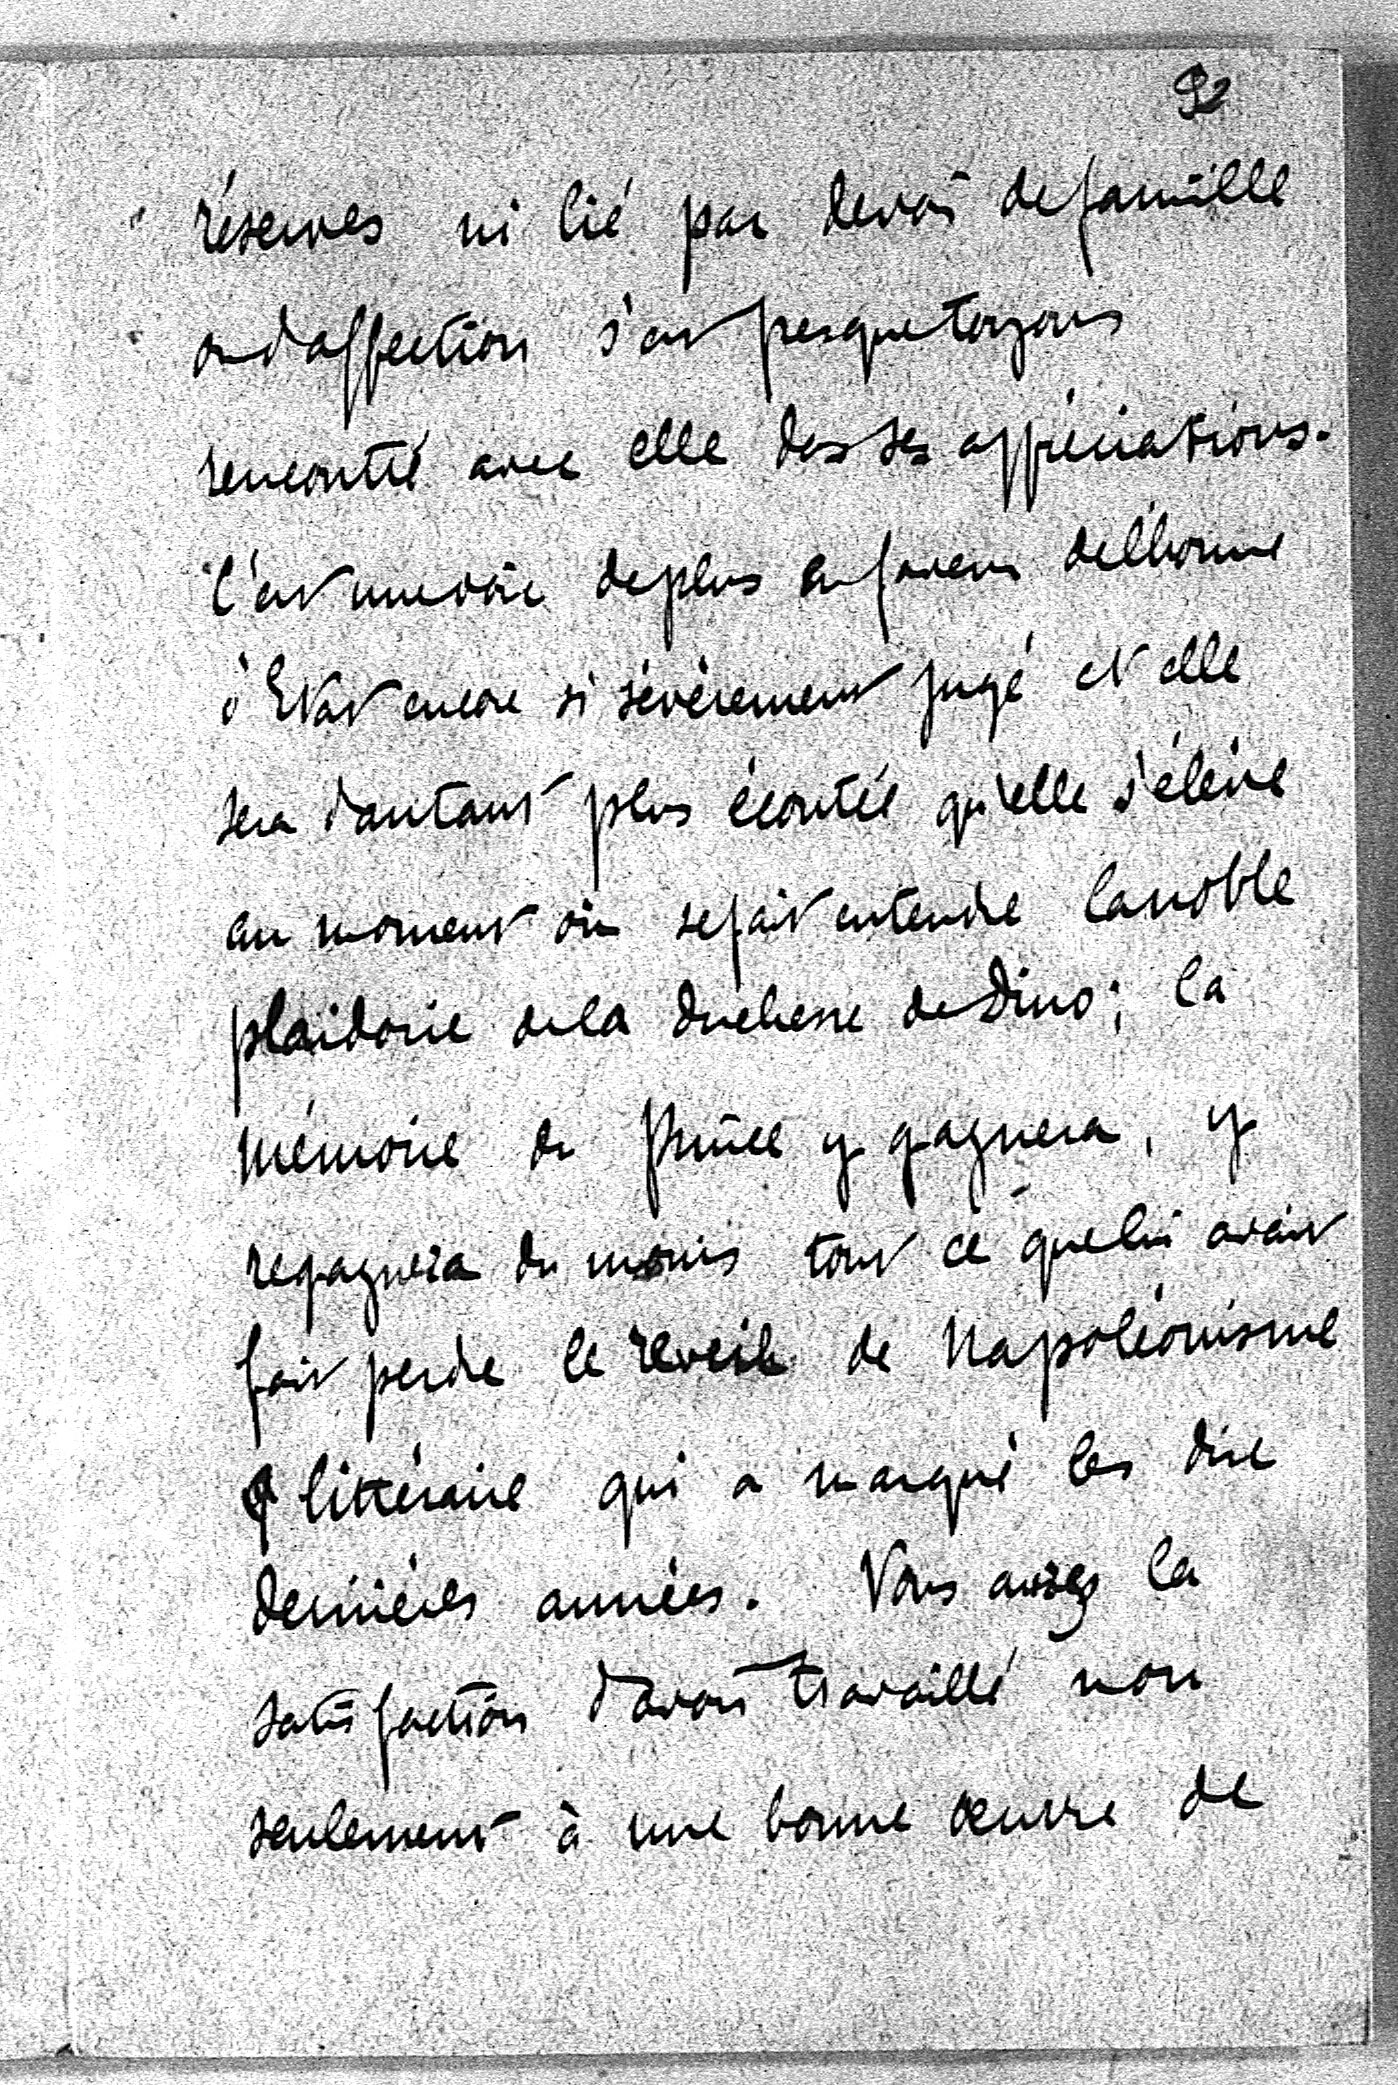 92
réserves ni lié par devoir de famille
ou d'affection s'est presque toujours
rencontré avec elle dans ses appréciations.
C'est une voix de plus en faveur de l'homme
d'Etat encore si sévèrement jugé et elle
sera d'autant plus écoutée qu'elle s'élève
au moment où se fait entendre la noble
plaidoirie de la duchesse de Dino ; la
mémoire du prince y gagnera, y
regagnera du moins tout ce que lui avait
fait perdre le réveil de Napoléonisme
littéraire qui a marqué les dix
dernières années. Vous aurez la
satisfaction d'avoir travaillé non
seulement à une bonne œuvre de